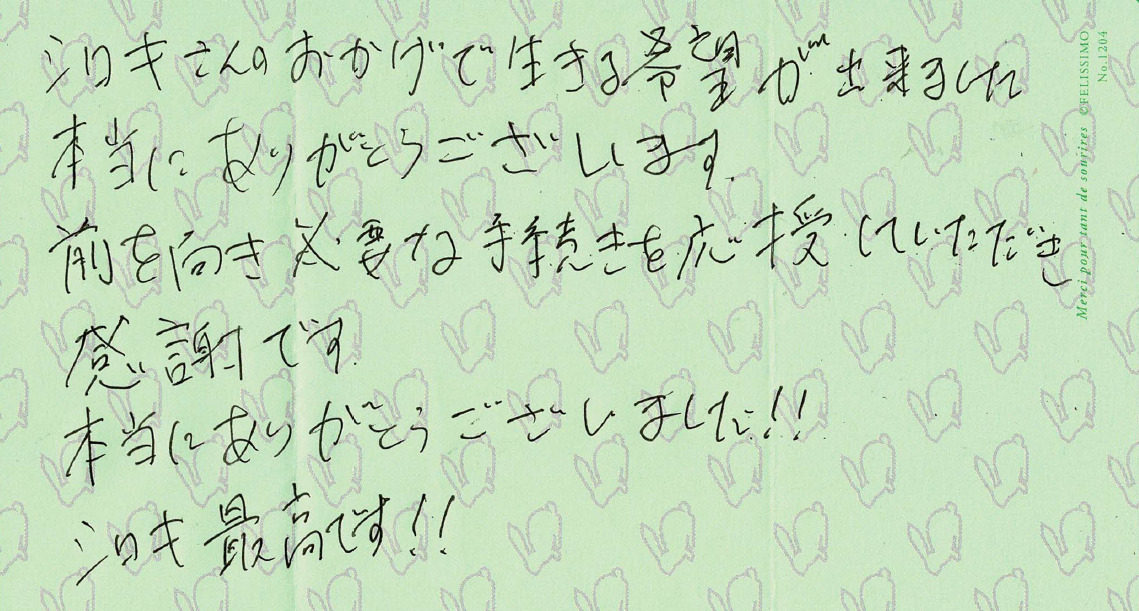 シロキさんのおかげで生きる希望が出来ました
本当にありがとうございます.
前を向き必要な手続きを応授していただき
感謝です.
本当にありがとうございました!!
シロキ最高です!!
Merci pour tant de sourires ©FELISSIMO
No.1204